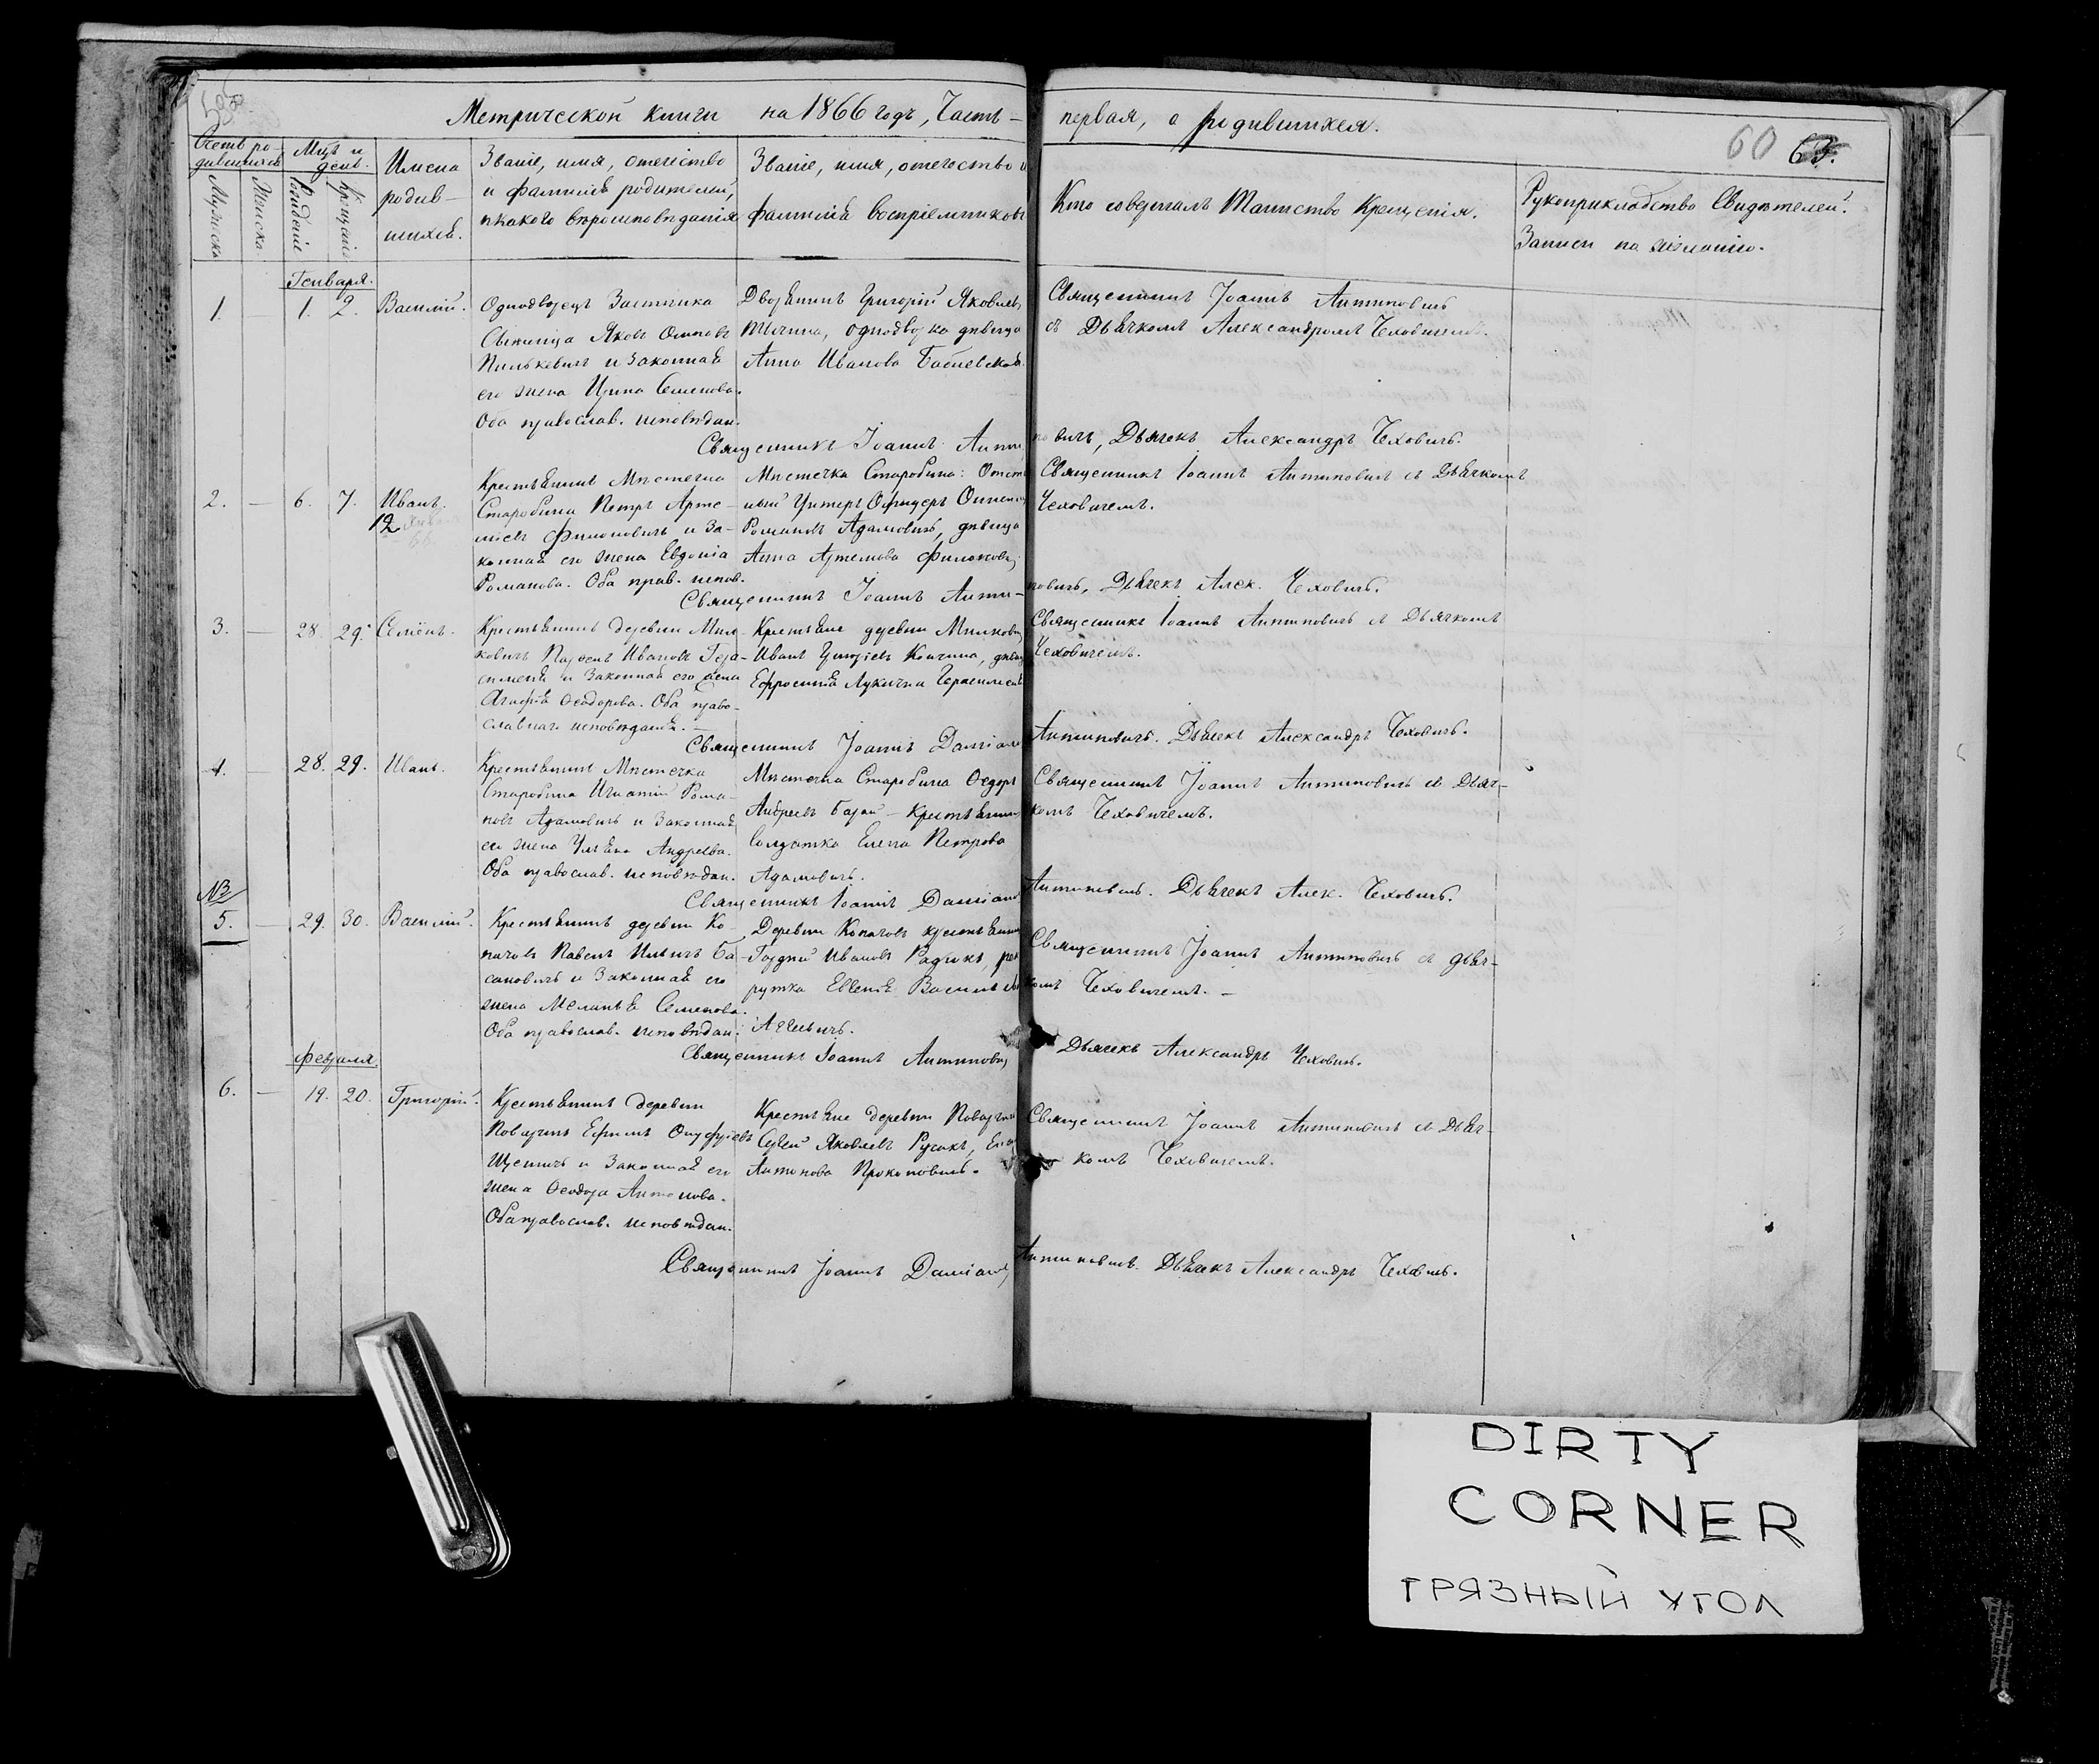 Метрической книги на 1866 годъ, Часть – первая, о родившихся.
60 63.
Счетъ ро-
дившихся
Мужска
Женска
Мцъ и
день.
Рожденіе
Крещеніе
Имена
родив-
шихся.
Званіе, имя, отечество
и фамилія родителей,
и какого вѣроисповѣданія
Званіе, имя, отечество и
фамилія воспріемниковъ
Кто совершалъ Таинство Крещенія.
Рукоприкладство Свидѣтелей.
Записи по желанію.
Генваря.
1. 1. 2. Василій.
Однодворецъ Застѣнка
Яковъ Осиповъ
и законная
его жена Ирина Семенова.
Оба православ. исповѣдан.
Дворянинъ Григорій Яковлевъ
однодворка дѣвица
Анна Иванова
Священникъ Іоаннъ Антиповичъ
съ Дьячкомъ Александромъ Чеховичемъ.
Священникъ Іоаннъ Антиповичъ, Дьячекъ Александръ Чеховичъ.
2. – 6. 7. Иванъ.
12
Крестьянинъ Мѣстечка
Старобина Петръ Арте-
міевъ Филоповичъ и за-
конная его жена Евдокія
Романова. Оба прав. испов.
Мѣстечка Старобина: Отстав
ный Унтеръ Офицеръ
Романовъ Адамовичъ, дѣвица
Анна Артемова
Священникъ Іоаннъ Антиповичъ съ Дьячкомъ
Чеховичемъ.
Священникъ Іоаннъ Анти-повичъ, Дьячекъ Алек. Чеховичъ.
3. – 28. 29. Семенъ.
Крестьянинъ деревни Мил-
ковичъ Иванов Гера-
сименя и законная его жена
Агафія Ѳеодорова. Оба право-
славнаго исповѣданія.
Крестьяне деревни Милкович
Иванъ дѣвиц
Ефросинія Лукична Герасименя
Священникъ Іоаннъ Антиповичъ съ Дьячкомъ
Чеховичемъ.
Священникъ Іоаннъ Даміан Антиповичъ. Дьячекъ Александръ Чеховичъ.
4. 28. 29. Иванъ.
Крестьянинъ Мѣстечка
Старобина Игнатій Рома-
новъ Адамовичъ и законная
его жена Ульяна Андреева.
Оба православ. исповѣдан.
Мѣстечка Старобина Ѳедоръ
Андреевъ – Крестьянинъ
солдатка Елена Петрова
Адамовичъ.
Священникъ Іоаннъ Антиповичъ съ Дьяч-
комъ Чеховичемъ.
Священникъ Іоаннъ Даміан Антиповичъ. Дьячекъ Алек. Чеховичъ.
5. – 29. 30. Василій.
Крестьянинъ деревни Ко-
пачовъ Павелъ Ильичъ Ба-
сановичъ и законная его
жена Меланья Семенова.
Оба православ. исповѣдан.
Деревни Копачовъ крестьянинъ
Гордѣй Ивановъ Радюкъ, рек
рутка Евгенія Васильева
Священникъ Іоаннъ Антиповичъ съ дьяч-
комъ Чеховичемъ. –
Священникъ Іоаннъ Антиповичъ Дьячекъ Александръ Чеховичъ.
Февраля
6. – 19. 20. Григорій.
Крестьянинъ деревни
Поварчицъ Ефимъ Онуфріевъ
и законная его
жена Ѳеодора Антонова.
Оба православ. исповѣдан.
Крестьяне деревни Поварчиц
Сергей Яковлевъ Русакъ,
Антонова Прокоповичъ.
Священникъ Іоаннъ Антиповичъ съ Дьяч-
комъ Чеховичемъ.
Священникъ Іоаннъ Даміан Антиповичъ. Дьячекъ Александръ Чеховичъ.
DIRTY
CORNER
ГРЯЗНЫЙ УГОЛ